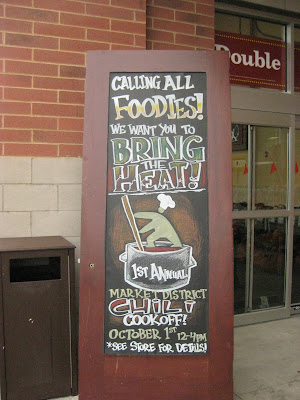 CALLING ALL
FOODIES!
WE WANT YOU TO
BRING
THE
HEAT!
1ST ANNUAL
MARKET DISTRICT
CHILI
COOKOFF!
OCTOBER 1ST 12-4PM
*SEE STORE FOR DETAILS!
Double